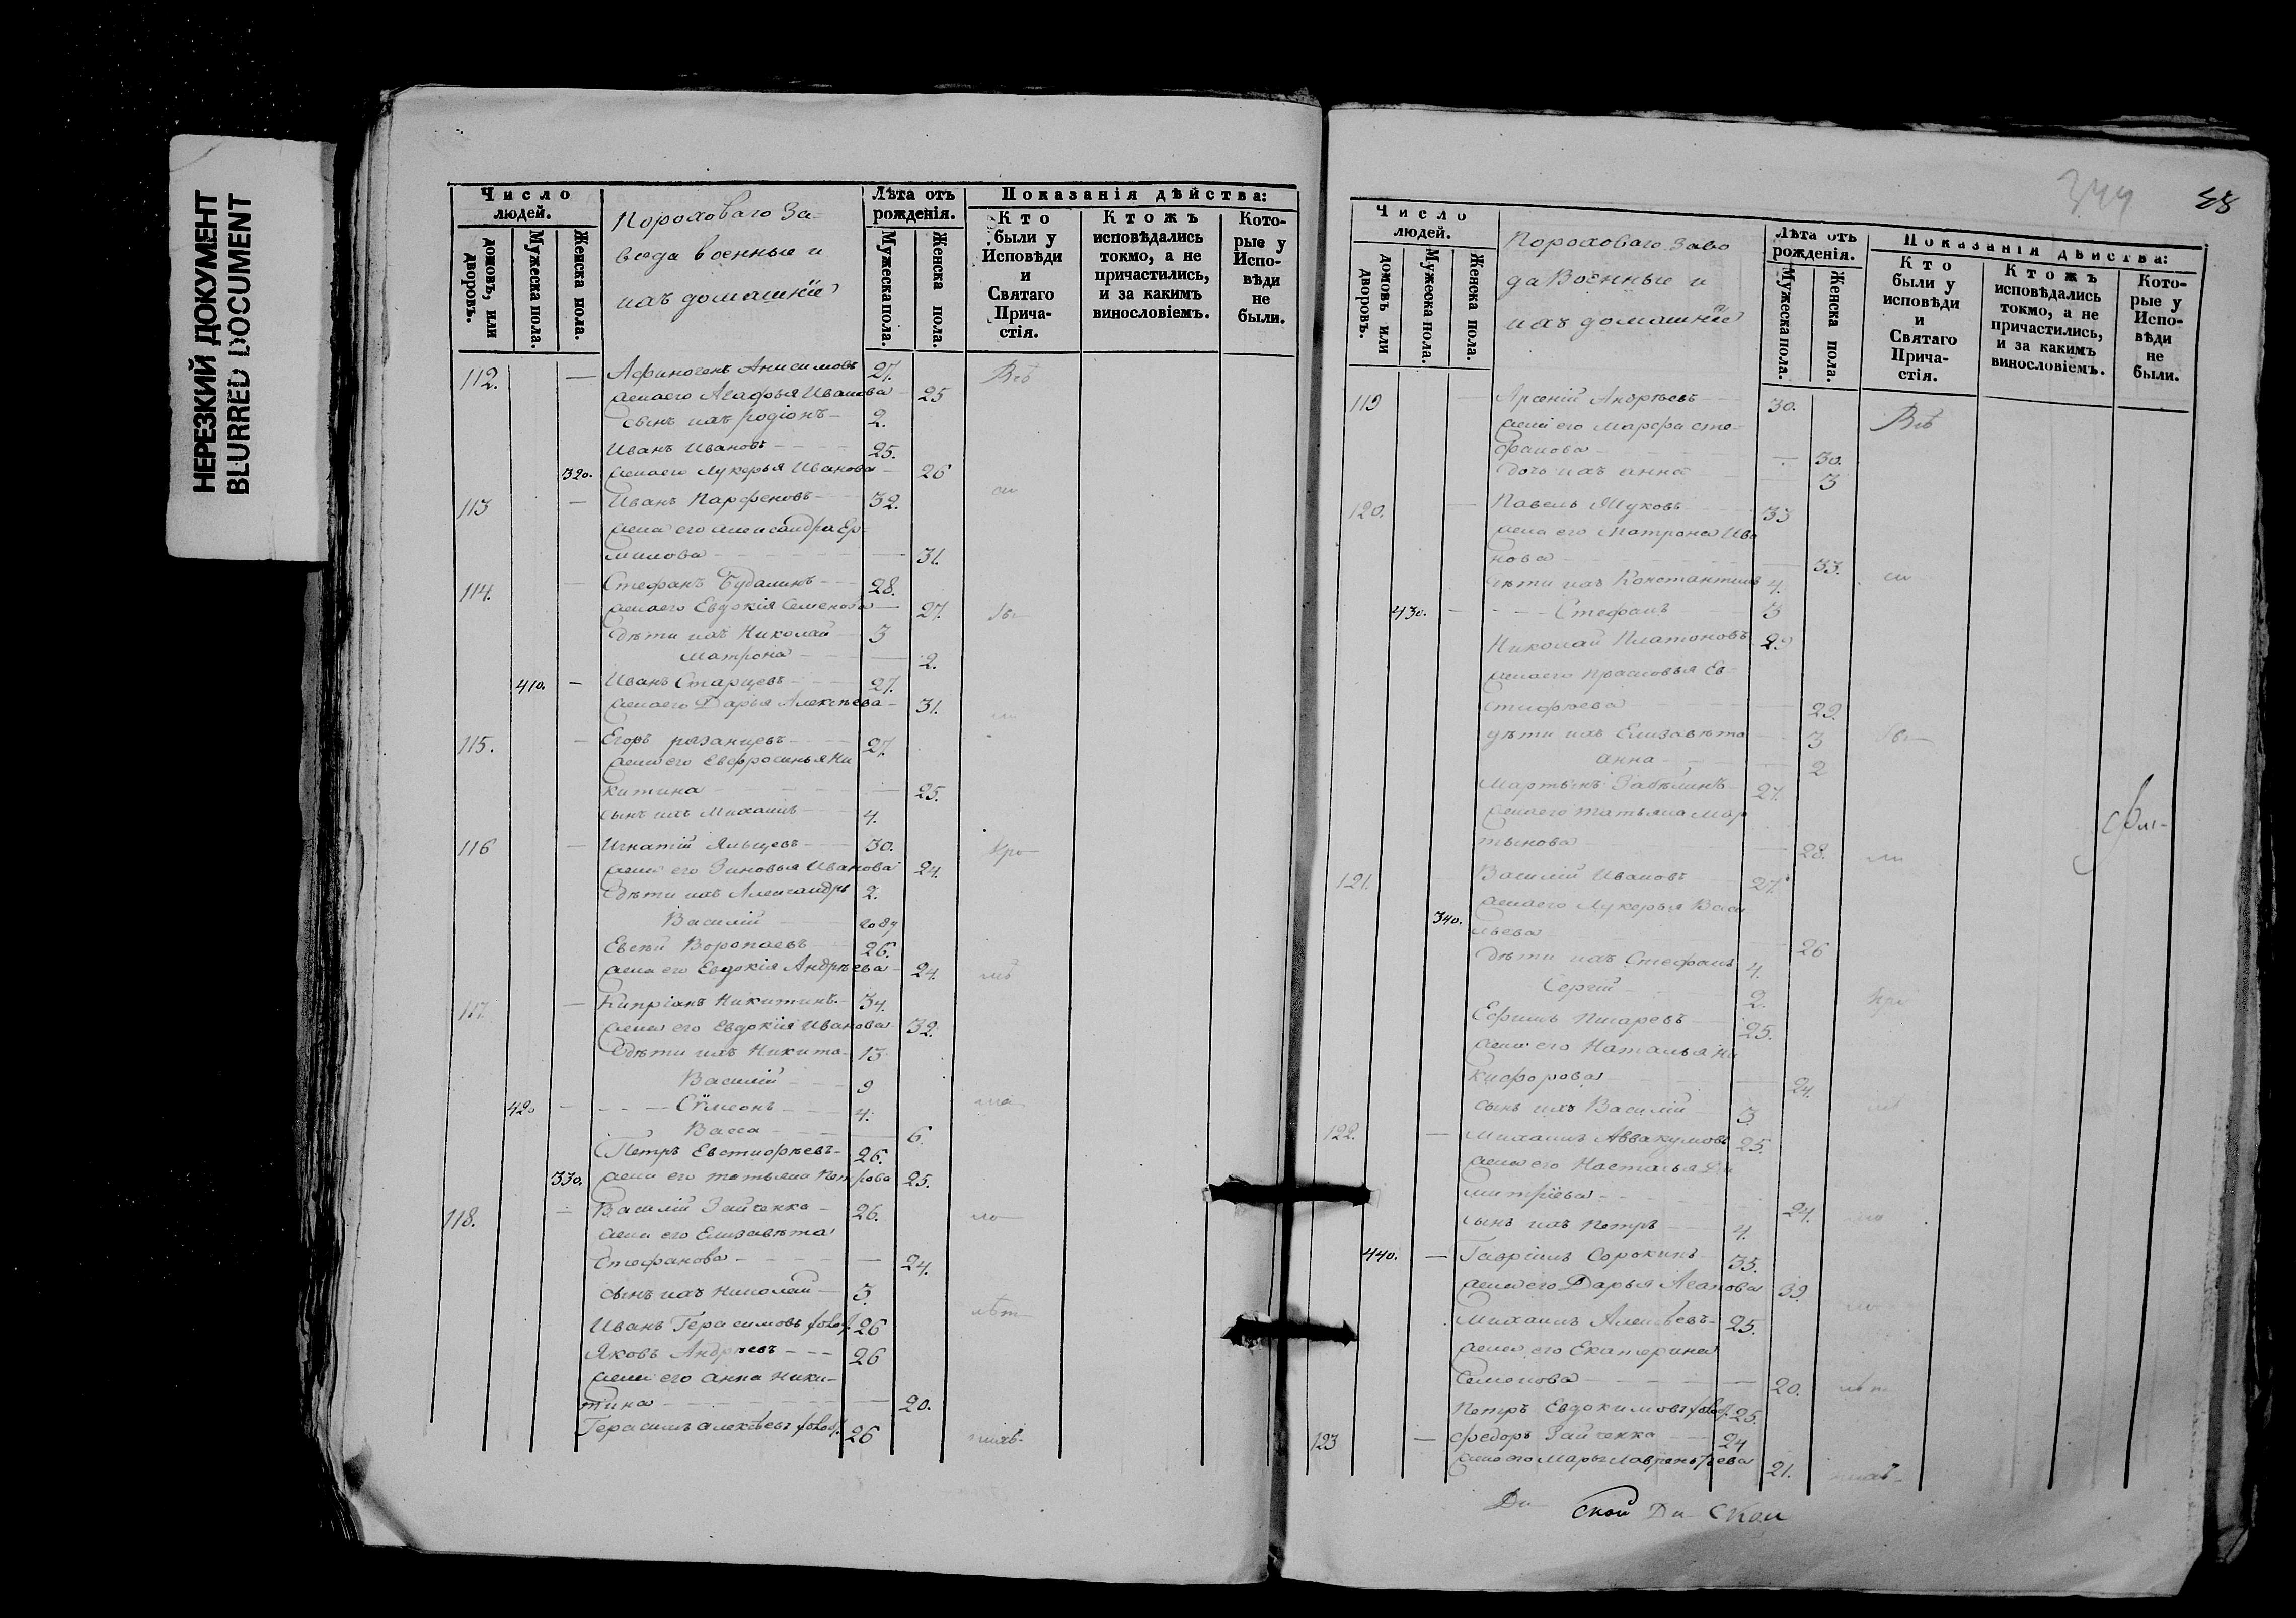 НЕРЕЗКИЙ ДОКУМЕНТ
BLURRED DOCUMENT
Число людей.
домовъ, или дворовъ.
Мужеска пола.
Женска пола.
Пороховаго За-
вода военные и
ихъ домашнїе
Лѣта отъ рожденія.
Мужеска пола.
Женска пола.
Показанія дѣйства:
Кто были у Исповѣди и Святаго Прича- стія.
Ктожъ исповѣдались токмо, а не причастились, и за какимъ винословіемъ.
Кото- рые у Испо- вѣди не были.
112. — Афиногенъ Анисимовъ 27. Всѣ
жена его Агафья Иванова 25
сынъ ихъ Родіонъ 2.
Иванъ Ивановъ 25.
320. жена его Лукерья Иванова 26
113 — Иванъ Парфеновъ 32. сіи
жена его Александра Ер-
милова 31.
114. Стефанъ Будалинъ 28.
жена его Евдокія Семенова 27.
дѣти ихъ Николай 3
Матрона 2.
410. — Иванъ Старцевъ 27.
жена его Дарья Алексѣева 31.
115. Егоръ Рязанцевъ 27.
жена его Евфросинья Ни
китина 25.
сынъ ихъ Михаилъ 4.
116 — Игнатій Яльцевъ 30.
жена его Зиновья Иванова 24.
дѣти ихъ Александръ 2.
Василій году
Евсѣй Воропаевъ 26.
жена его Евдокія Андрѣева 24.
117. — Кипріанъ Никитинъ 34.
жена его Евдокія Иванова 32.
дѣти ихъ Никита 13
Василій 9
420 Сѵмеонъ 4.
Васса 6.
Петръ Евстифѣевъ 26.
330. жена его Татьяна Петрова 25.
118. Василій Зайченко 26.
жена его Елизавѣта
Стефанова 24.
сынъ ихъ Николай 3.
Иванъ Герасимовъ холос. 26
Яковъ Андреевъ 26
жена его Анна Ники-
тина 20.
Герасимъ Алексѣевъ холос. 26
344
48
Число людей.
домовъ или дворовъ.
Мужеска пола.
Женска пола.
Пороховаго Заво
да Военные и
ихъ домашнїе
Лѣта отъ рожденія.
Мужеска пола.
Женска пола.
Показанія дѣйства:
Кто были у исповѣди и Святаго Прича- стія.
Ктожъ исповѣдались токмо, а не причастились, и за какимъ винословіемъ.
Кото- рые у Испо- вѣди не были.
119 Арсеній Андрѣевъ 30. Всѣ
жена его Марфа Сте-
фанова 30.
дочь ихъ Анна 3
120. Павелъ Жуковъ 33
жена его Матрона Ива
нова 33. сіи
дѣти ихъ Константинъ 4.
430. Стефанъ 3
Николай Платоновъ 29
жена его Прасковья Ев-
стифѣева 29.
дѣти ихъ Елизавѣта 3
Анна 2
Мартынъ Забѣлинъ 27.
жена его Татьяна Мар
тынова 28.
121. Василій Ивановъ 27.
жена его Лукерья Васи
340. льева 26
дѣти ихъ Стефанъ 4.
Сергій 2.
Ефимъ Писаревъ 25.
жена его Наталья Ни
кифорова 24.
сынъ ихъ Василій 3
122. — Михаилъ Аввакумовъ 25.
жена его Настасья Ди
митріева 24.
сынъ ихъ Петръ 4.
440. — Гавріилъ Сорокинъ 35.
жена его Дарья Агапова 39.
Михаилъ Алексѣевъ 25.
жена его Екатерина
Семенова 20.
Петръ Евдокимовъ холос. 25.
123 — Федоръ Зайченко 24
жена его Марья Лаврентьева 21.
Ди- ской Ди- Ской